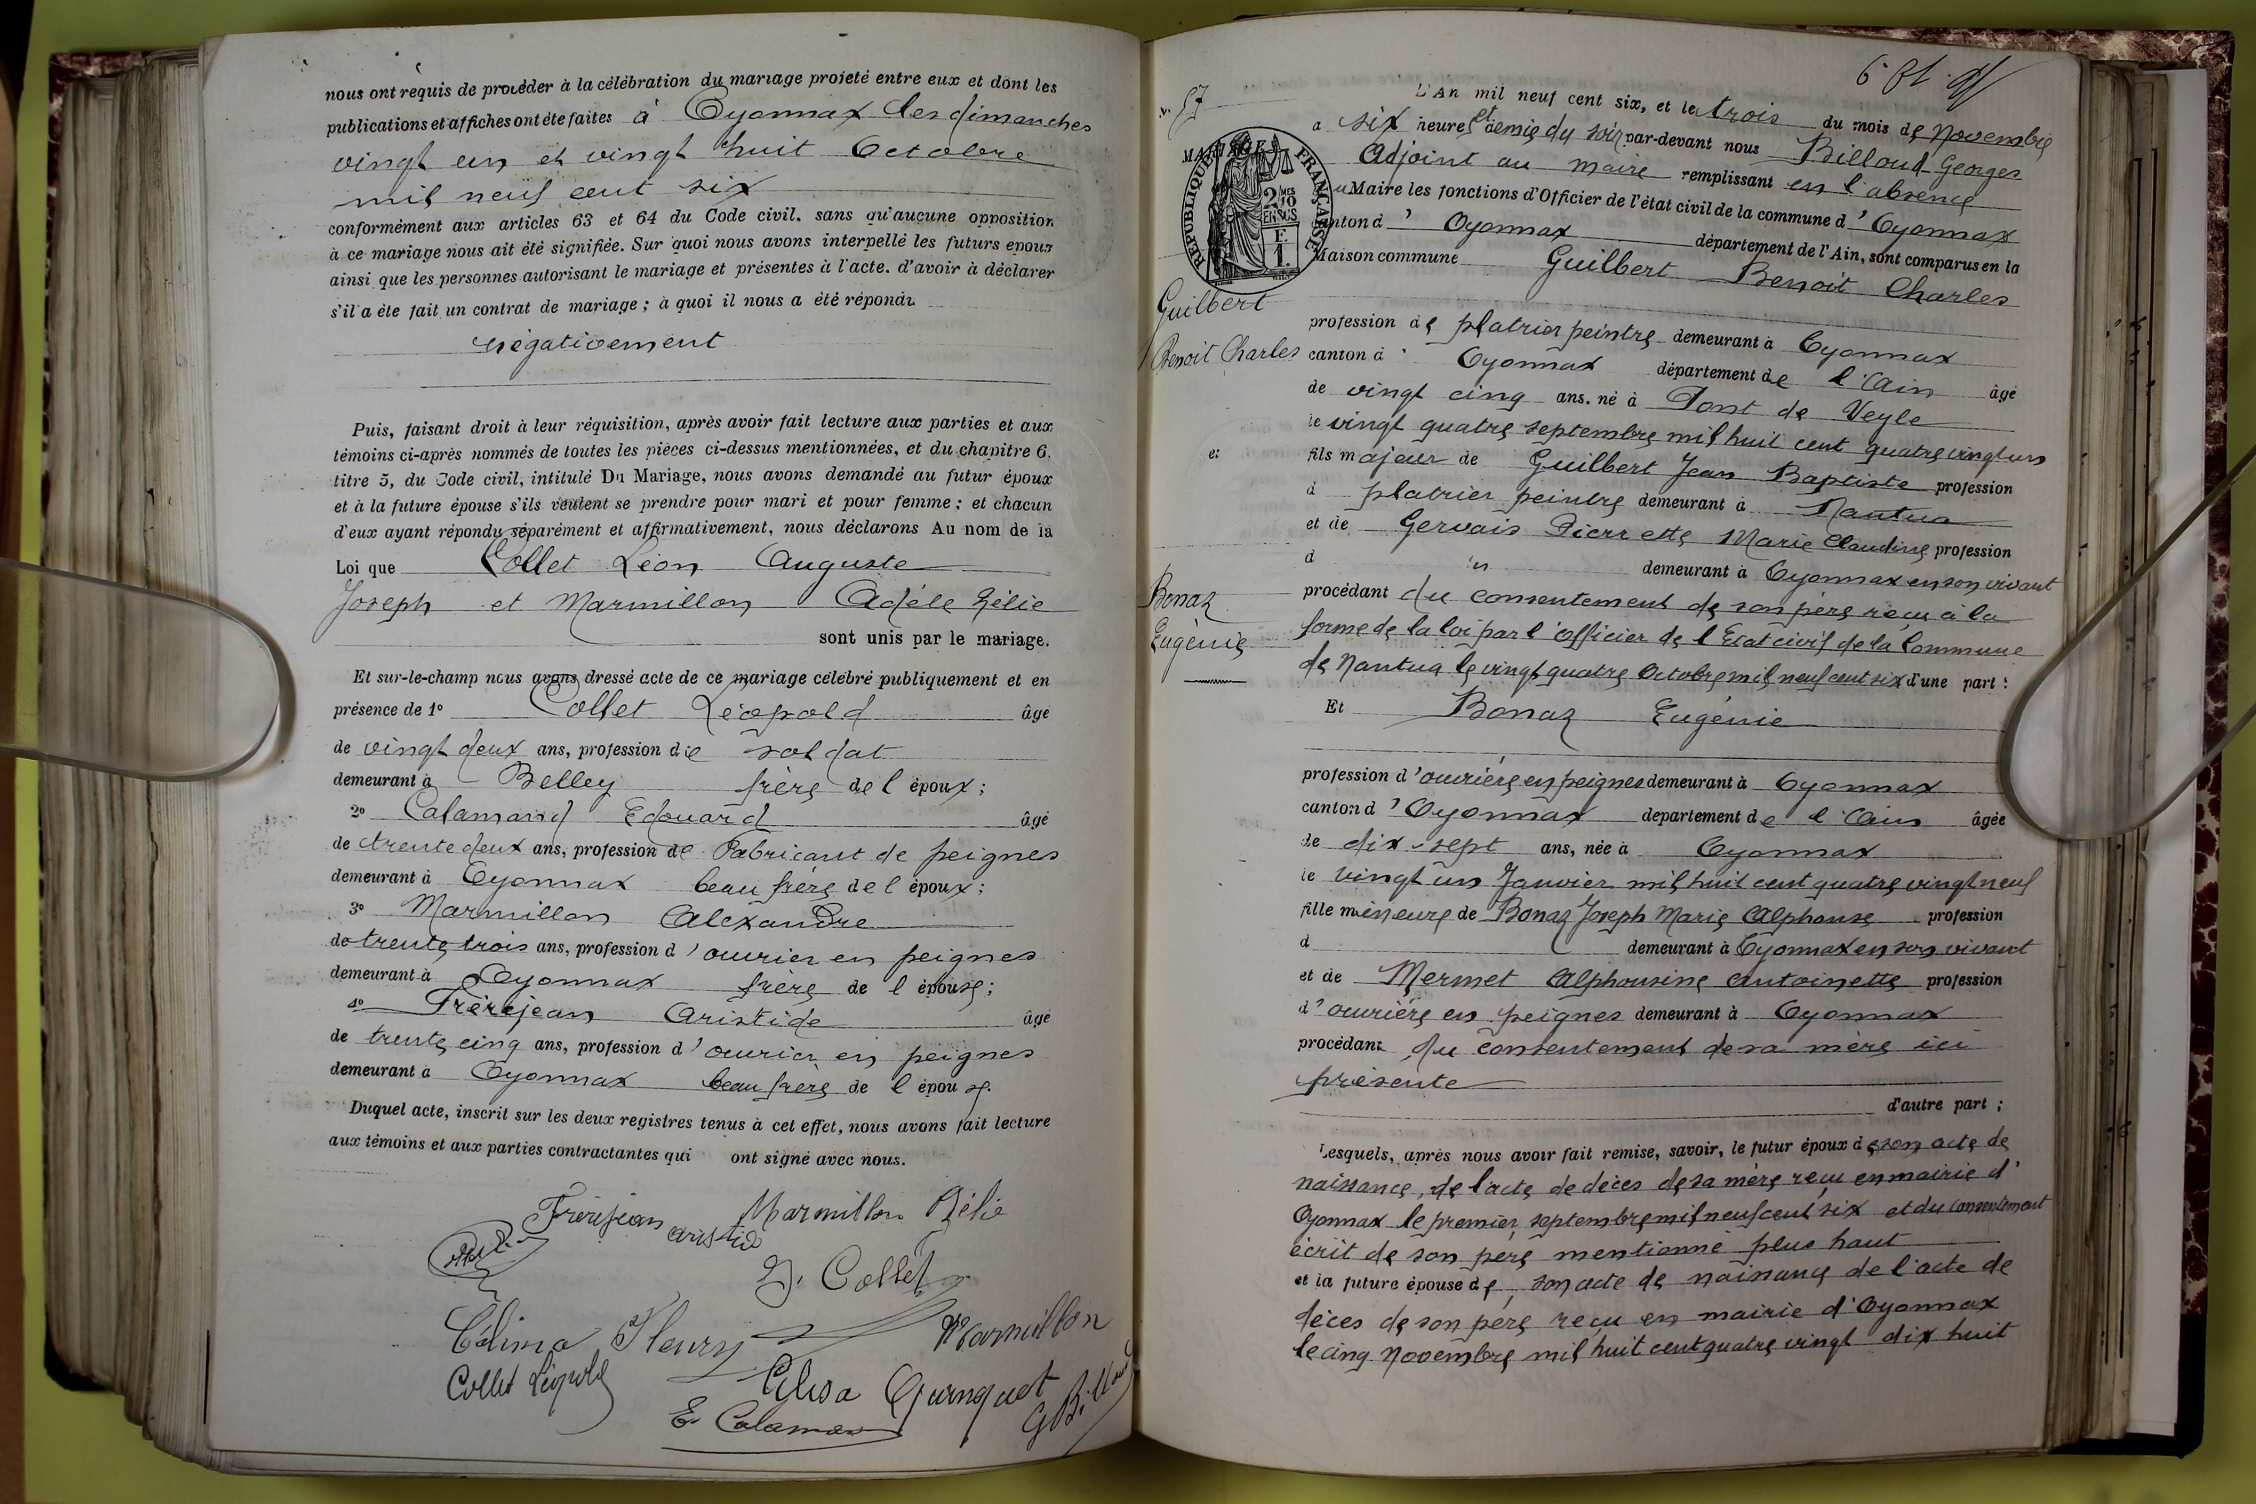 nous ont requis de procéder à la célébration du mariage projeté entre eux et dont les
publications et affiches ont été faites à Oyonnax les dimanches
vingt un et vingt huit Octobre
mil neuf cent six
conformément aux articles 63 et 64 du Code civil. sans qu'aucune opposition
à ce mariage nous ait été signifiée. Sur quoi nous avons interpellé les futurs époux
ainsi que les personnes autorisant le mariage et présentes à l'acte. d'avoir à déclarer
s'il a été fait un contrat de mariage ; à quoi il nous a été répondu
négativement
Puis, faisant droit à leur réquisition, après avoir fait lecture aux parties et aux
témoins ci-après nommés de toutes les pièces ci-dessus mentionnées, et du chapitre 6,
titre 5, du Code civil, intitulé Du Mariage, nous avons demandé au futur époux
et à la future épouse s'ils veulent se prendre pour mari et pour femme ; et chacun
d'eux ayant répondu séparément et affirmativement, nous déclarons Au nom de la
Loi que Collet Léon Auguste
Joseph et Marmillon Adèle Zélie
sont unis par le mariage.
Et sur-le-champ nous avons dressé acte de ce mariage célébré publiquement et en
présence de 1° Collet Léopold âgé
de vingt deux ans, profession de soldat
demeurant à Belley frère de l'époux ;
2° Calamand Edouard âgé
de trente deux ans, profession de Fabricant de peignes
demeurant à Oyonnax beau frère de l'époux ;
3° Marmillon Alexandre
de trente trois ans, profession d'ouvrier en peignes
demeurant à Oyonnax frère de l'épouse ;
4° Frèrejean Aristide âgé
de trente cinq ans, profession d'ouvrier en peignes
demeurant à Oyonnax beau frère de l'épouse.
Duquel acte, inscrit sur les deux registres tenus à cet effet, nous avons fait lecture
aux témoins et aux parties contractantes qui ont signé avec nous.
Frèrejean Aristide
Marmillon Zélie
L. Collet
Célima Fleury
Marmillon
Collet Léopold
Elisa Quinquet
E. Calamand
G Billoud
N° 57
L'An mil neuf cent six, et le trois du mois de Novembre
à six heures et demie du soir par-devant nous Billoud Georges
Adjoint au maire remplissant en l'absence
du Maire les fonctions d'Officier de l'état civil de la commune d'Oyonnax
canton d'Oyonnax département de l'Ain, sont comparus en la
Maison commune Guilbert Benoit Charles
RÉPUBLIQUE FRANÇAISE
2 MES
/10
EN SUS
Guilbert
Benoit Charles
et
Bonaz
Eugénie
profession de platrier peintre demeurant à Oyonnax
canton d'Oyonnax département de l'Ain âgé
de vingt cinq ans. né à Pont de Veyle
le vingt quatre septembre mil huit cent quatre vingt un
fils majeur de Guilbert Jean Baptiste profession
d platrier peintre demeurant à Nantua
et de Gervais Pierrette Marie Claudine profession
d " demeurant à Oyonnax en son vivant
procédant du consentement de son père reçu à la
forme de la loi par l'officier de l'Etat civil de la Commune
de Nantua le vingt quatre Octobre mil neuf cent six d'une part :
Et Bonaz Eugénie
profession d'ouvrière en peignes demeurant à Oyonnax
canton d'Oyonnax département de l'Ain âgée
de dix-sept ans, née à Oyonnax
le vingt un Janvier mil huit cent quatre vingt neuf
fille mineure de Bonaz Joseph Marie Alphonse profession
d demeurant à Oyonnax en son vivant
et de Mermet Alphonsine Antoinette profession
d'ouvrière en peignes demeurant à Oyonnax
procédant du consentement de sa mère ici
présente
d'autre part ;
Lesquels, après nous avoir fait remise, savoir, le futur époux de son acte de
naissance, de l'acte de décès de sa mère reçu en mairie d'
Oyonnax le premier septembre mil neuf cent six et du consentement
écrit de son père mentionné plus haut
et la future épouse de, son acte de naissance de l'acte de
décès de son père reçu en mairie d'Oyonnax
le cinq Novembre mil huit cent quatre vingt dix huit